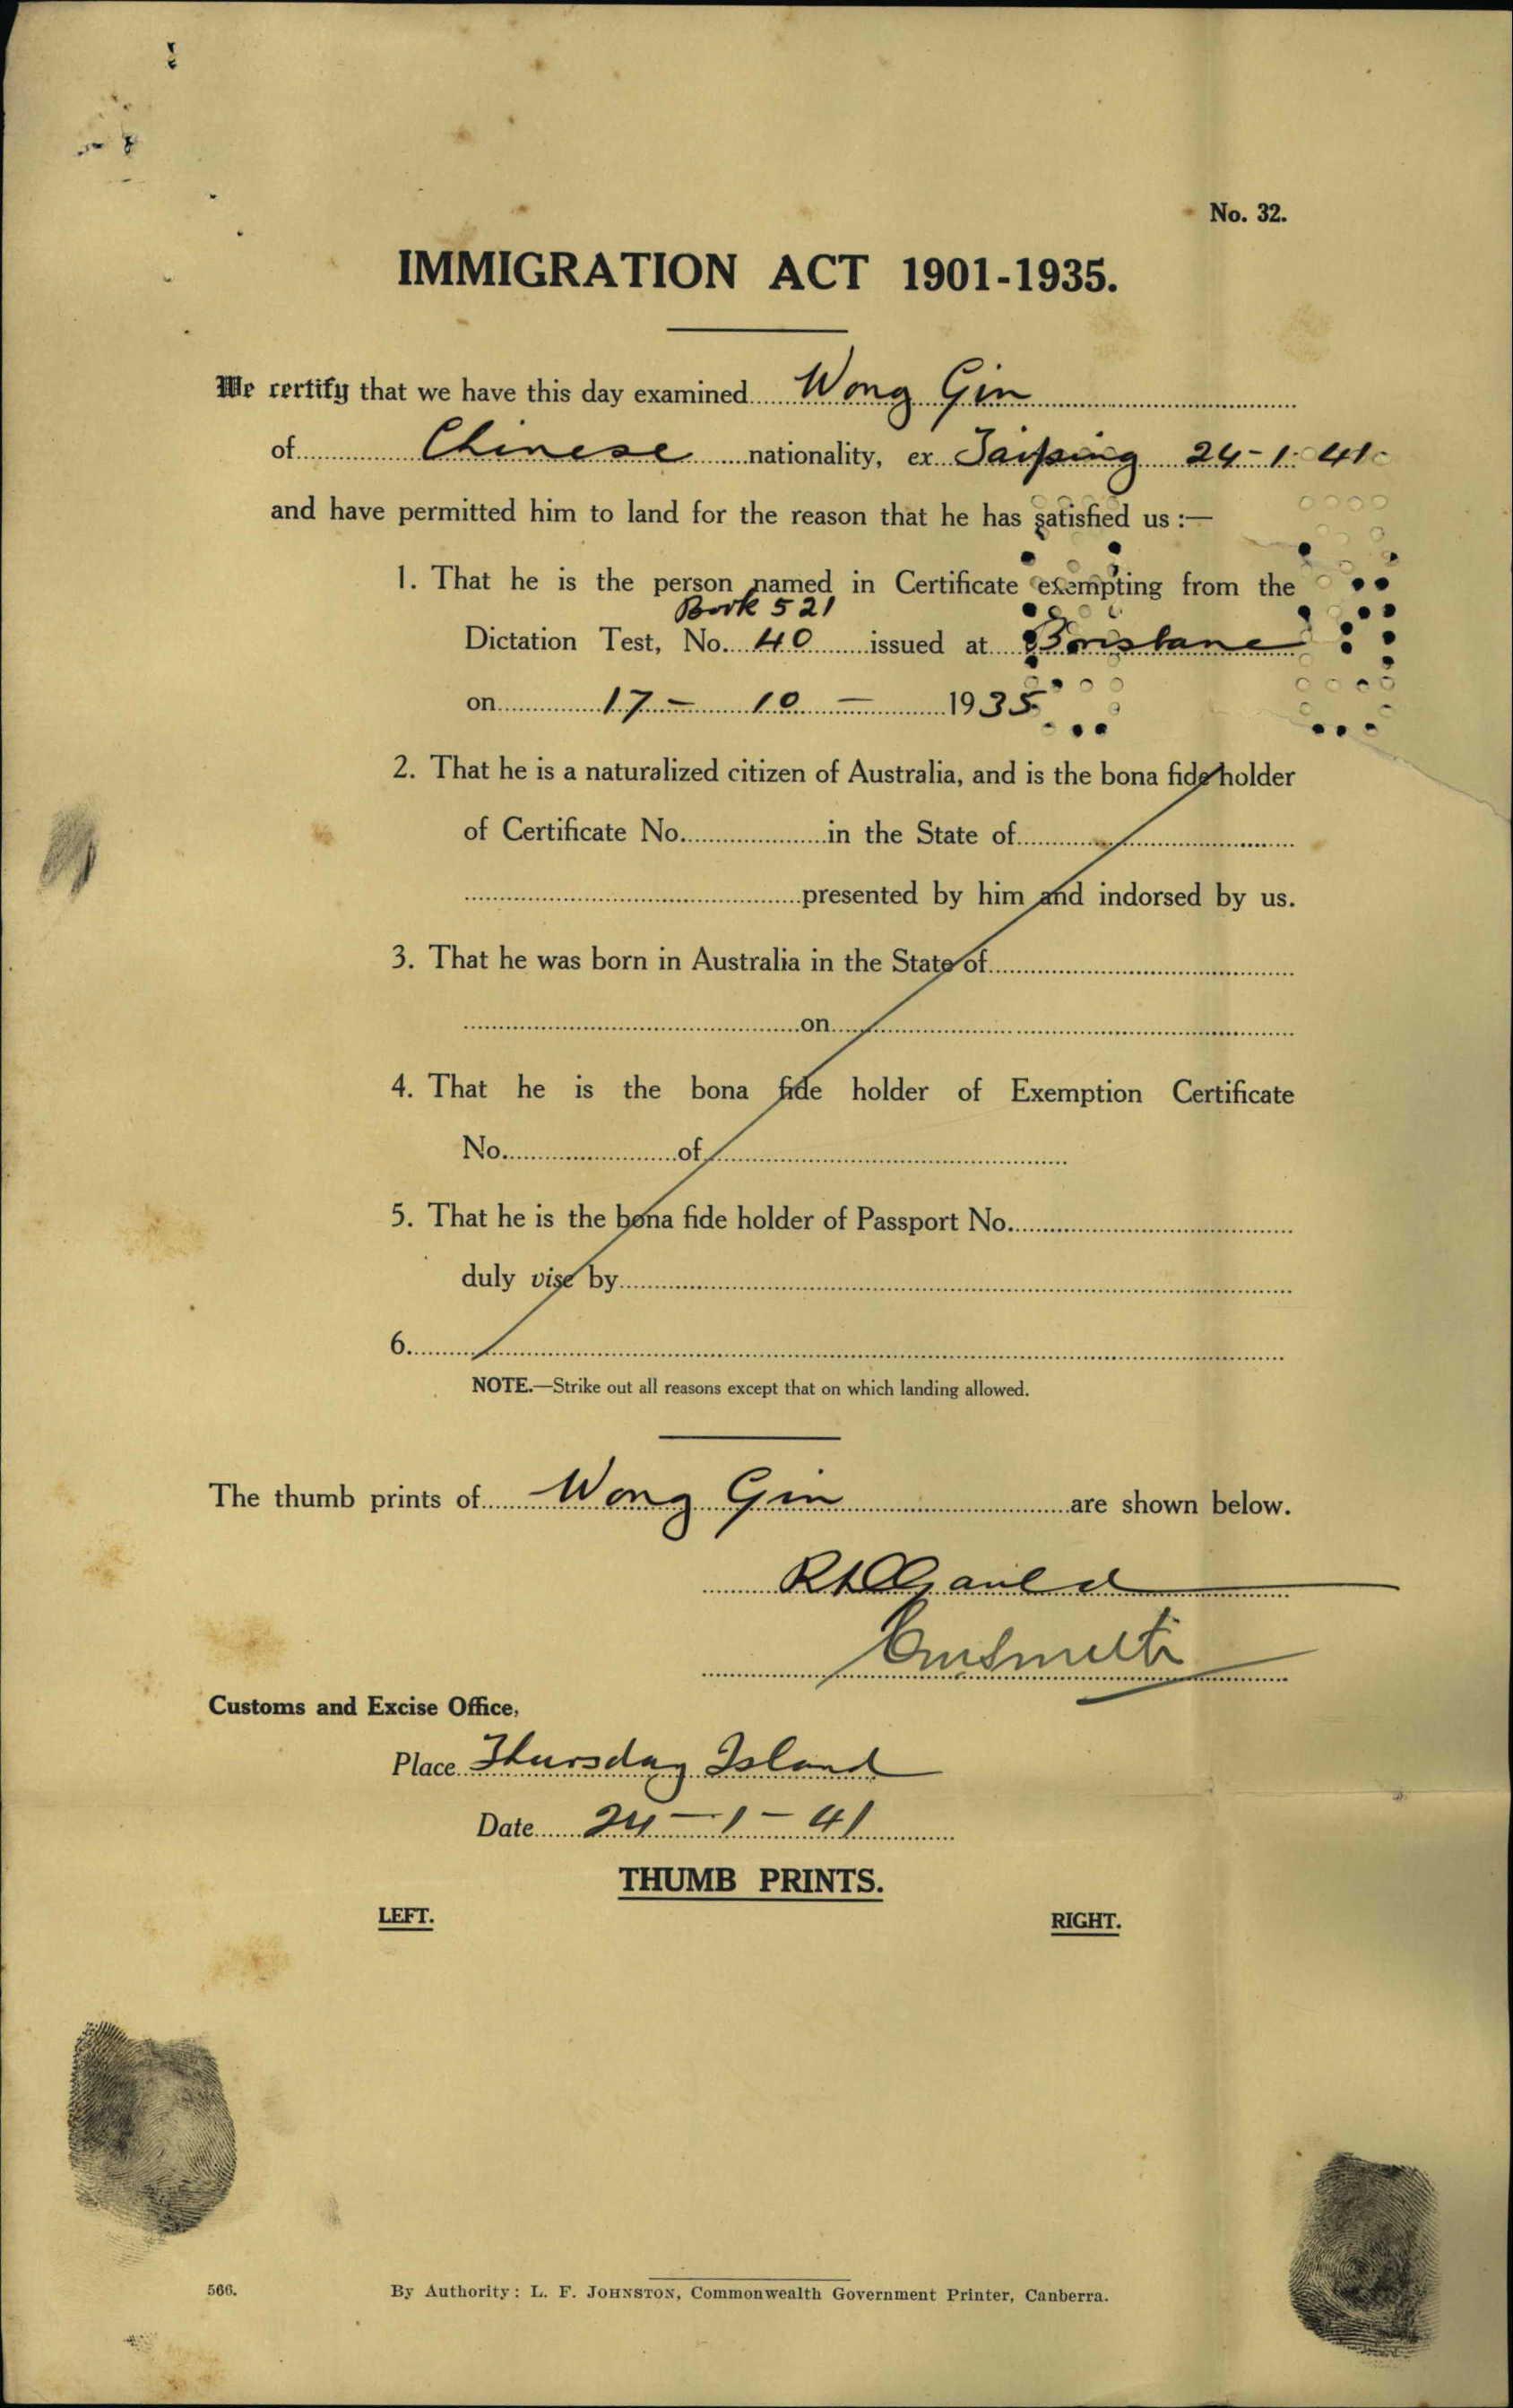 No. 32.
IMMIGRATION ACT 1901-1935.
We certify that we have this day examined Wong Gin
of Chinese nationality, ex Taiping 24-1-41
and have permitted him to land for the reason that he has satisfied us :—
1. That he is the person named in Certificate exempting from the
Book 521
Dictation Test, No. 40 issued at Brisbane
on 17 - 10 - 1935
2. That he is a naturalized citizen of Australia, and is the bona fide holder
of Certificate No. in the State of
presented by him and indorsed by us.
3. That he was born in Australia in the State of
on
4. That he is the bona fide holder of Exemption Certificate
No. of
5. That he is the bona fide holder of Passport No.
duly vise by
6.
NOTE.—Strike out all reasons except that on which landing allowed.
The thumb prints of Wong Gin are shown below.
Customs and Excise Office,
Place Thursday Island
Date 24-1-41
THUMB PRINTS.
LEFT. RIGHT.
566. By Authority: L. F. JOHNSTON, Commonwealth Government Printer, Canberra.